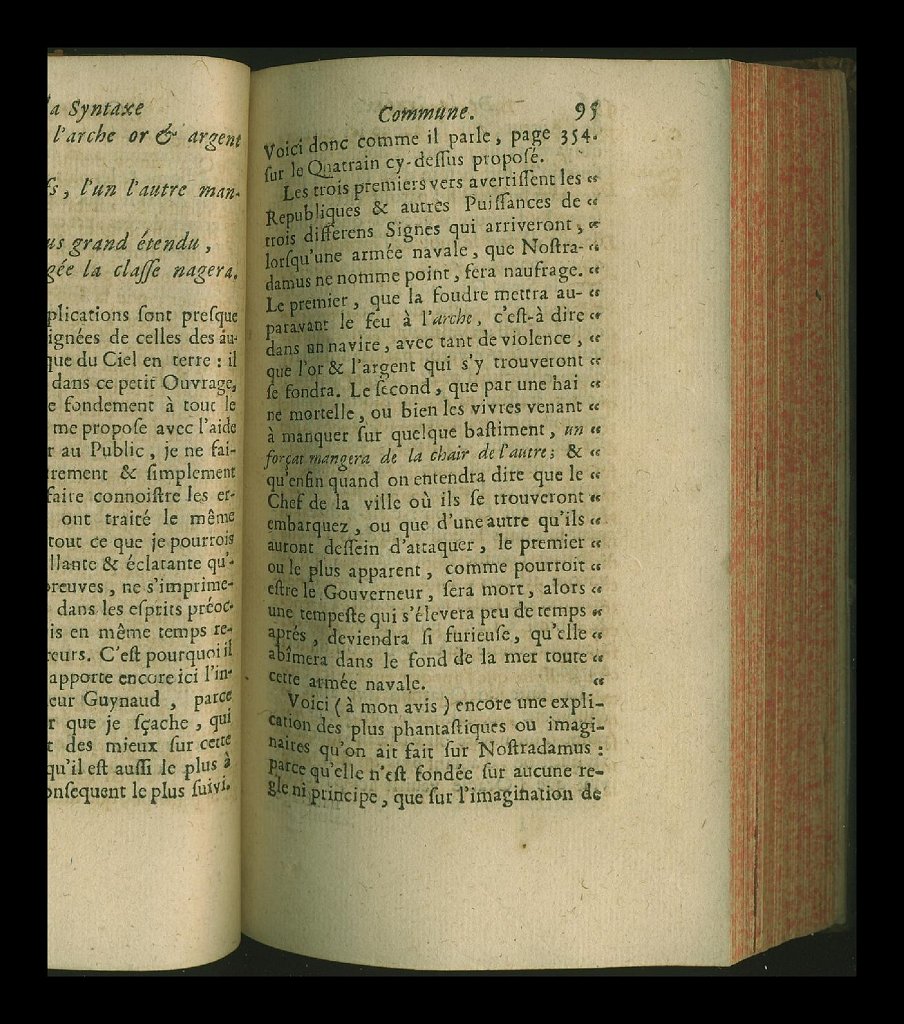 la Syntaxe
l'arche or & argent
s, l'un l'autre man-
us grand étendu,
gée la classe nagera.
plications sont presque
ignées de celles des au-
que du Ciel en terre : il
dans ce petit Ouvrage,
e fondement à tout le
me propose avec l'aide
r au Public, je ne fai-
rement & simplement
faire connoistre les er-
ont traité le même
tout ce que je pourrois
llante & éclatante qu'-
reuves, ne s'imprime-
dans les esprits préoc-
is en même temps re-
eurs. C'est pourquoi il
apporte encore ici l'in-
eur Guynaud, parce
r que je sçache, qui
t des mieux sur cette
qu'il est aussi le plus à
onsequent le plus suivi.
Commune. 95
Voici donc comme il parle, page 354.
sur le Quatrain cy-dessus proposé.
Les trois premiers vers avertissent les “
Republiques & autres Puissances de “
trois differens Signes qui arriveront, “
lorsqu'une armée navale, que Nostra- “
damus ne nomme point, fera naufrage. “
Le premier, que la foudre mettra au- “
paravant le feu à l'arche, c'est-à dire “
dans un navire, avec tant de violence, “
que l'or & l'argent qui s'y trouveront “
se fondra. Le second, que par une hai “
ne mortelle, ou bien les vivres venant “
à manquer sur quelque bastiment, un “
forçat mangera de la chair de l'autre; & “
qu'enfin quand on entendra dire que le “
Chef de la ville où ils se trouveront “
embarquez, ou que d'une autre qu'ils “
auront dessein d'attaquer, le premier “
ou le plus apparent, comme pourroit “
estre le Gouverneur, sera mort, alors “
une tempeste qui s'élevera peu de temps “
aprés, deviendra si furieuse, qu'elle “
abîmera dans le fond de la mer toute “
cette armée navale. “
Voici ( à mon avis ) encore une expli-
cation des plus phantastiques ou imagi-
naires qu'on ait fait sur Nostradamus :
parce qu'elle n'est fondée sur aucune re-
gle ni principe, que sur l'imagination de